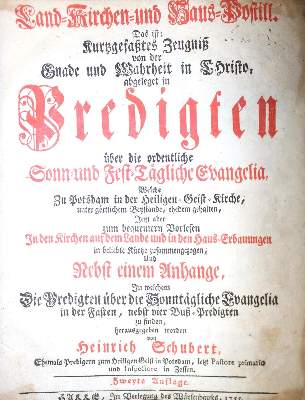 Land-Kirchen-und Haus-Postill.
Das ist:
Kurtzgefaßtes Zeugniß
von der
Gnade und Wahrheit in Christo,
abgeleget in
Predigten
über die ordentliche
Sonn-und Fest-Tägliche Evangelia,
Welche
Zu Potsdam in der Heiligen-Geist-Kirche,
unter göttlichem Beystande, ehedem gehalten,
Jetzt aber
zum bequemern Vorlesen
In den Kirchen auf dem Lande und in den Haus-Erbauungen
in beliebte Kürtze zusammengezogen,
Und
Nebst einem Anhange,
In welchem
Die Predigten über die Sonntägliche Evangelia
in der Fasten, nebst vier Buß-Predigten
zu finden,
herausgegeben worden
von
Heinrich Schubert,
Ehemals Predigern zum Heiligen Geist in Potsdam, jetzt Pastore primario
und Inspectore in Zossen.
Zweyte Auflage.
HALLE, Im Verlegung des Wäysenhauses,